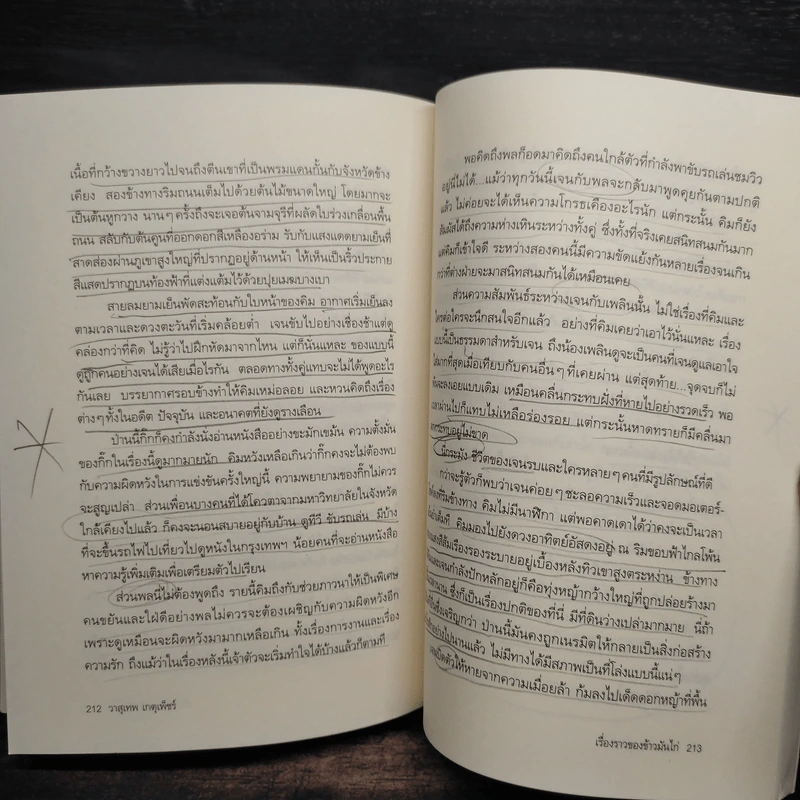 เนื้อที่กว้างขวางยาวไปจนถึงตีนเขาที่เป็นพรมแดนกั้นกับจังหวัดข้าง
เคียง สองข้างทางริมถนนเต็มไปด้วยต้นไม้ขนาดใหญ่ โดยมากจะ
เป็นต้นหูกวาง นานๆ ครั้งถึงจะเจอต้นจามจุรีที่ผลัดใบร่วงเกลื่อนพื้น
ถนน สลับกับต้นคูนที่ออกดอกสีเหลืองอร่าม รับกับแสงแดดยามเย็นที่
สาดส่องผ่านภูเขาสูงใหญ่ที่ปรากฏอยู่ด้านหน้า ให้เห็นเป็นริ้วประกาย
สีแสดปรากฏบนท้องฟ้าที่แต่งแต้มไว้ด้วยปุยเมฆบางเบา
สายลมยามเย็นพัดสะท้อนกับใบหน้าของคิม อากาศเริ่มเย็นลง
ตามเวลาและดวงตะวันที่เริ่มคล้อยต่ำ เจนขับไปอย่างเชื่องช้าแต่ดู
คล่องกว่าที่คิด ไม่รู้ว่าไปฝึกหัดมาจากไหน แต่ก็นั่นแหละ ของแบบนี้
ดูถูกคนอย่างเจนได้เสียเมื่อไรกัน ตลอดทางทั้งคู่แทบจะไม่ได้พูดอะไร
กันเลย บรรยากาศรอบข้างทำให้คิมเหม่อลอย และหวนคิดถึงเรื่อง
ต่างๆ ทั้งในอดีต ปัจจุบัน และอนาคตที่ยังดูรางเลือน
ป่านนี้กิ๊กก็คงกำลังนั่งอ่านหนังสืออย่างขะมักเขม้น ความตั้งมั่น
ของกิ๊กในเรื่องนี้ดูมากมายนัก คิมหวังเหลือเกินว่ากิ๊กคงจะไม่ต้องพบ
กับความผิดหวังในการแข่งขันครั้งใหญ่นี้ ความพยายามของกิ๊กไม่ควร
จะสูญเปล่า ส่วนเพื่อนบางคนที่ได้โควตาจากมหาวิทยาลัยในจังหวัด
ใกล้เคียงไปแล้ว ก็คงจะนอนสบายอยู่กับบ้าน ดูทีวี ขับรถเล่น มีบ้าง
ที่จะขึ้นรถไฟไปเที่ยวไปดูหนังในกรุงเทพฯ น้อยคนที่จะอ่านหนังสือ
หาความรู้เพิ่มเติมเพื่อเตรียมตัวไปเรียน
ส่วนพลนี่ไม่ต้องพูดถึง รายนี้คิมถึงกับช่วยภาวนาให้เป็นพิเศษ
คนขยันและใฝ่ดีอย่างพลไม่ควรจะต้องเผชิญกับความผิดหวังอีก
เพราะดูเหมือนจะผิดหวังมามากเหลือเกิน ทั้งเรื่องการงานและเรื่อง
ความรัก ถึงแม้ว่าในเรื่องหลังนี้เจ้าตัวจะเริ่มทำใจได้บ้างแล้วก็ตามที
212 วาสุเทพ เกตุเพ็ชร์
พอคิดถึงพลก็อดมาคิดถึงคนใกล้ตัวที่กำลังพาขับรถเล่นชมวิว
อยู่นี่ไม่ได้...แม้ว่าทุกวันนี้เจนกับพลจะกลับมาพูดคุยกันตามปกติ
แล้ว ไม่ค่อยจะได้เห็นความโกรธเคืองอะไรนัก แต่กระนั้น คิมก็ยัง
สัมผัสได้ถึงความห่างเหินระหว่างทั้งคู่ ซึ่งทั้งที่จริงเคยสนิทสนมกันมาก
แต่คิมก็เข้าใจดี ระหว่างสองคนนี้มีความขัดแย้งกันหลายเรื่องจนเกิน
กว่าที่ต่างฝ่ายจะมาสนิทสนมกันได้เหมือนเคย
ส่วนความสัมพันธ์ระหว่างเจนกับเพลินนั้น ไม่ใช่เรื่องที่คิมและ
ใครต่อใครจะนึกสนใจอีกแล้ว อย่างที่คิมเคยว่าเอาไว้นั่นแหละ เรื่อง
แบบนี้เป็นธรรมดาสำหรับเจน ถึงน้องเพลินดูจะเป็นคนที่เจนดูแลเอาใจ
ใส่มากที่สุดเมื่อเทียบกับคนอื่นๆ ที่เคยผ่าน แต่สุดท้าย...จุดจบก็ไม่
พ้นจะลงเอยแบบเดิม เหมือนคลื่นกระทบฝั่งที่หายไปอย่างรวดเร็ว พอ
เวลาผ่านไปก็แทบไม่เหลือร่องรอย แต่กระนั้นหาดทรายก็มีคลื่นมา
กระทบอยู่ไม่ขาด
นี่กระมัง ชีวิตของเจนรบและใครหลายๆ คนที่มีรูปลักษณ์ที่ดี
กว่าจะรู้ตัวก็พบว่าเจนค่อยๆ ชะลอความเร็วและจอดมอเตอร์-
ไซค์ลงที่ริมข้างทาง คิมไม่มีนาฬิกา แต่พอคาดเดาได้ว่าคงจะเป็นเวลา
คิมมองไปยังดวงอาทิตย์อัสดงอยู่ ณ ริมขอบฟ้าไกลโพ้น
แสงสีส้มเรืองรองระบายอยู่เบื้องหลังทิวเขาสูงตระหง่าน ข้างทาง
และเจนกำลังปักหลักอยู่ก็คือทุ่งหญ้ากว้างใหญ่ที่ถูกปล่อยร้างมา
นาน ซึ่งก็เป็นเรื่องปกติของที่นี่ มีที่ดินว่างเปล่ามากมาย นี่ถ้า
เจริญกว่า ป่านนี้มันคงถูกเนรมิตให้กลายเป็นสิ่งก่อสร้าง
อย่างไปนานแล้ว ไม่มีทางได้มีสภาพเป็นที่โล่งแบบนี้แน่ๆ
บิดตัวให้หายจากความเมื่อยล้า ก้มลงไปเด็ดดอกหญ้าที่พื้น
เรื่องราวของข้าวมันไก่ 213